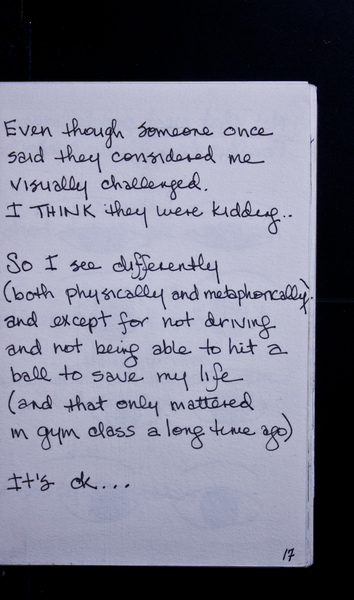 Even though someone once
said they considered me
visually challenged.
I THINK they were kidding..
So I see differently
(both physically and metaphorically).
and except for not driving
and not being able to hit a
ball to save my life
(and that only mattered
in gym class a long time ago)
It's ok...
17